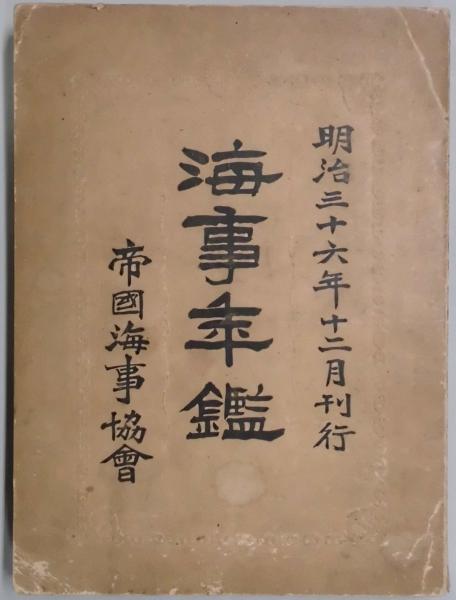 明治三十六年十二月刊行
海事年鑑
帝國海事協會